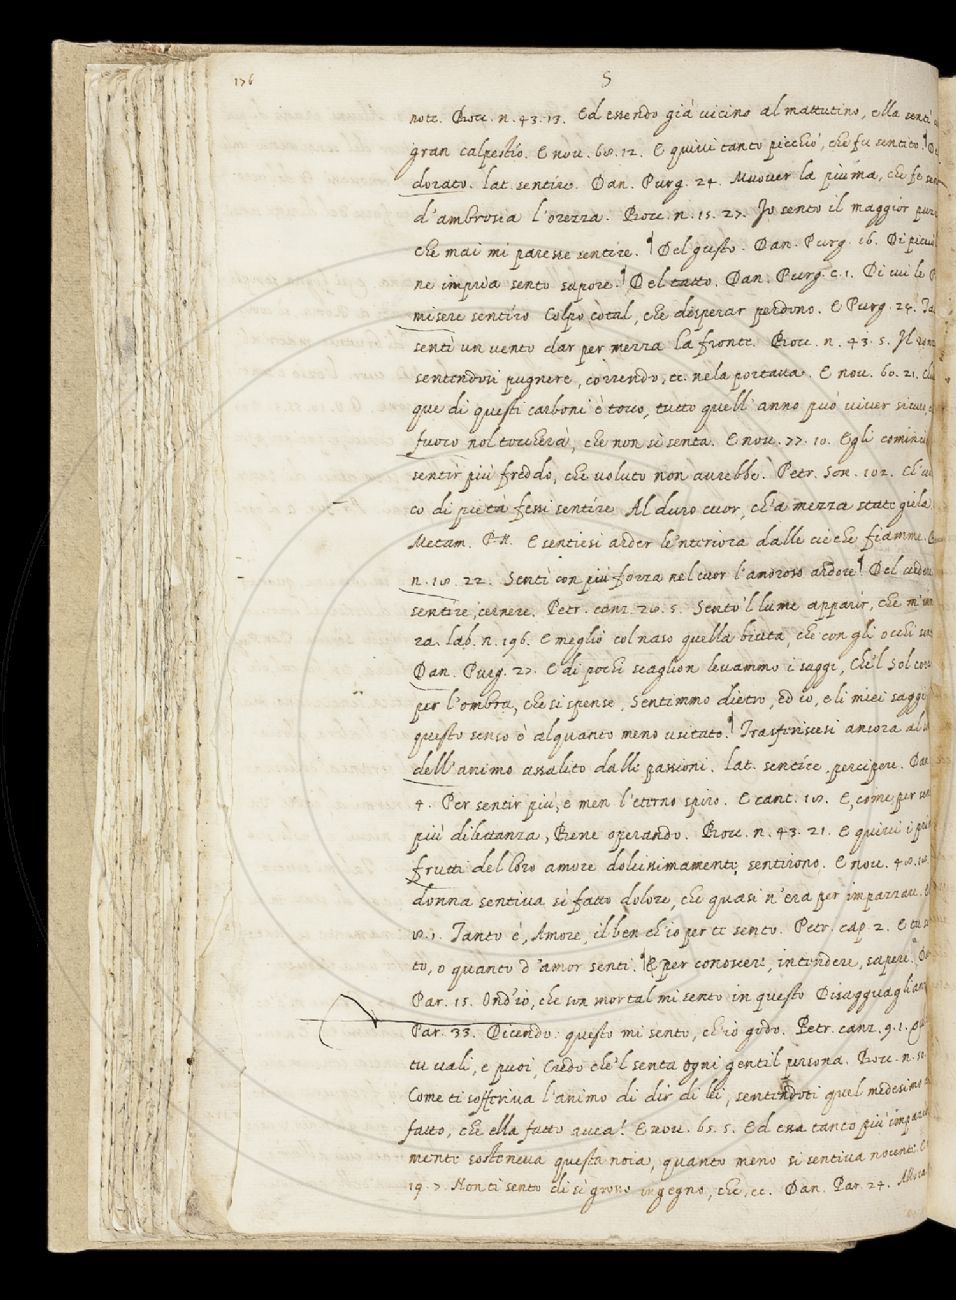 176
S
notte. Bocc. n. 43. 13. Ed essendo già vicino al mattutino, ella sentì
gran calpestío. E nov. 60. 12. E quivi tanto picchiò, che fu sentito.
dorato. lat. sentire. Dan. Purg. 24. Muover la piuma, che fe
d'ambrosia l'orezza. Bocc. n. 15. 27. Io sento il maggior puzzo
che mai mi paresse sentire. Del gusto. Dan. Purg. 16. Di
ne impria sento sapore. Del tatto. Dan. Purg. c. 1. Di cui le
misere sentiro Colpo cotal, che desperar perdono. E Purg. 24. Tal
sentì un vento dar per mezza la fronte. Bocc. n. 43. 5. Il
sentendosi pugnere, correndo, ec. ne la portava. E nov. 60. 21.
que di questi carboni è tocco, tutto quell'anno può viver sicuro,
fuoco nol toccherà, che non si senta. E nov. 77. 10. Egli cominciò
sentir più freddo, che voluto non avrebbe. Petr. Son. 102.
co di pietà fessi sentire Al duro cuor, ch'a mezza state gela
Metam. P. N. E sentiesi arder le'nteriora dalle cieche fiamme.
n. 10. 22. Sentì con più forza nel cuor l'amoroso ardore. Del vedere
sentire, cernere. Petr. canz. 20. 5. Sento'l lume apparir, che
ra. lab. n. 196. E meglio col naso quella bieta, che con gli occhi
Dan. Purg. 27. E di pochi scaglion levammo i saggi, Che'l Sol
per l'ombra, che si spense, Sentimmo dietro, ed io, e li miei saggi
questo senso è alquanto meno usitato. Trasferiscesi ancora
dell'animo assalito dalle passioni. lat. sentire, percipere. Dan
4. Per sentir più, e men l'eterno spiro. E cant. 18. E, come per
più dilettanza, Bene operando. Bocc. n. 43. 21. E quivi i
frutti del loro amore dolcissimamente sentirono. E nov. 40. 10.
donna sentiva sì fatto dolore, che quasi n'era per impazzare.
Tanto è, Amore, il ben ch'io per te sento. Petr. cap. 2. E
to, o quanto d'amor senti. E per conoscere, intendere, sapere.
Par. 15. Ond'io, che son mortal mi sento in questo Disagguaglianza
Par. 33. Dicendo questo mi sento, ch'io godo. Petr. canz. 9. 1.
tu vali, e puoi, Credo che'l senta ogni gentil persona. Bocc. n.
Come ti sofferiva l'animo di dir di lei, sentendoti quel medesimo
fatto, che ella fatto avea? E nov. 65. 5. Ed era tanto più
mente sosteneva questa noia, quanto meno si sentiva nocente.
19. 7. Non ti sento di sì grosso ingegno, che, ec. Dan. Par. 24.